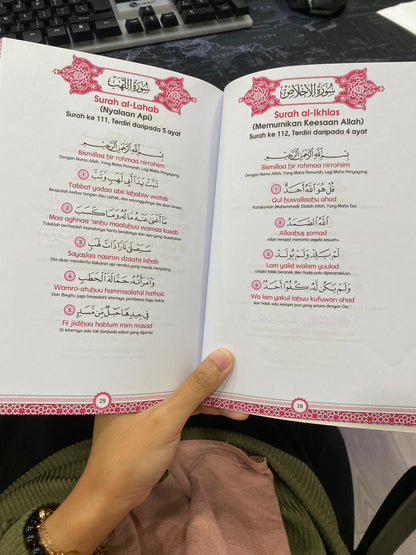 سورة اللهب
Surah al-Lahab
(Nyalaan Api)
Surah ke 111, Terdiri daripada 5 ayat
بِسْمِ اللَّهِ الرَّحْمَٰنِ الرَّحِيمِ
Bismillaa hir rohmaa nirrohiim
Dengan Nama Allah, Yang Maha Pemurah, Lagi Maha Penyayang.
1 تَبَّتْ يَدَا أَبِي لَهَبٍ وَتَبَّ
Tabbat yadaa abii lahabiw watab
Binasalah kedua tangan Abu Lahab, dan
2 مَا أَغْنَىٰ عَنْهُ مَالُهُ وَمَا كَسَبَ
Maa aghnaa 'anhu maaluhuu wamaa kasab
Tidaklah berfaedah kepadanya harta bendanya dan apa yang diusahakan.
3 سَيَصْلَىٰ نَارًا ذَاتَ لَهَبٍ
Sayaslaa naaron dzaata lahab
Dia akan menderita bakaran api neraka yang marak menjulang.
4 وَامْرَأَتُهُ حَمَّالَةَ الْحَطَبِ
Wamro-atuhuu hammaalatal hathob
5 فِي جِيدِهَا حَبْلٌ مِنْ مَسَدٍ
Fii jiidihaa hablum mim masad
Di lehernya ada tali daripada sabut yang dipintal
29
سورة الإخلاص
Surah al-Ikhlas
(Memurnikan Keesaan Allah)
Surah ke 112, Terdiri daripada 4 ayat
بِسْمِ اللَّهِ الرَّحْمَٰنِ الرَّحِيمِ
Bismillaa hir rohmaa nirrohiim
Dengan Nama Allah, Yang Maha Pemurah, Lagi Maha Penyayang.
1 قُلْ هُوَ اللَّهُ أَحَدٌ
Qul huwallaahu ahad
Katakanlah (Muhammad), Dialah Allah, Yang Maha Esa.
2 اللَّهُ الصَّمَدُ
Allaahuş şomad
Allah tempat meminta segala sesuatu.
3 لَمْ يَلِدْ وَلَمْ يُولَدْ
Lam yalid walam yuulad
(Allah) tidak beranak dan tiada pula diperanakkan.
4 وَلَمْ يَكُنْ لَهُ كُفُوًا أَحَدٌ
Wa lam yakul lahuu kufuwan ahad
dan tidak ada sesiapa pun yang setara dengan Dia."
28